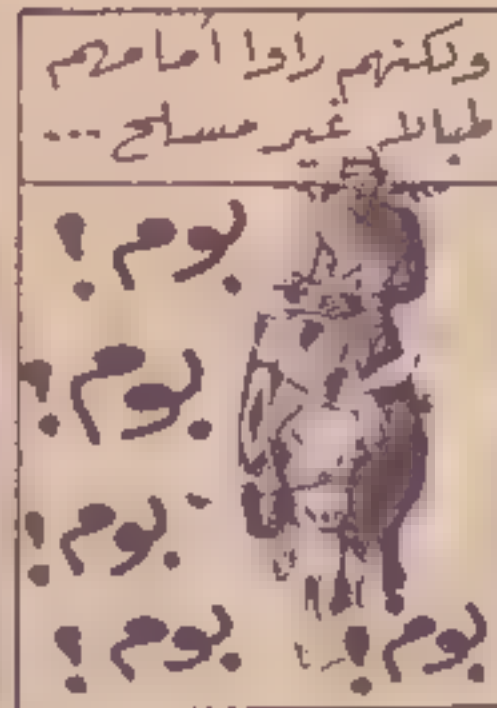 ولكنهم رأوا أمامهم
طبالا غير مسلح ...
بوم !
بوم !
بوم !
بوم !
بوم !